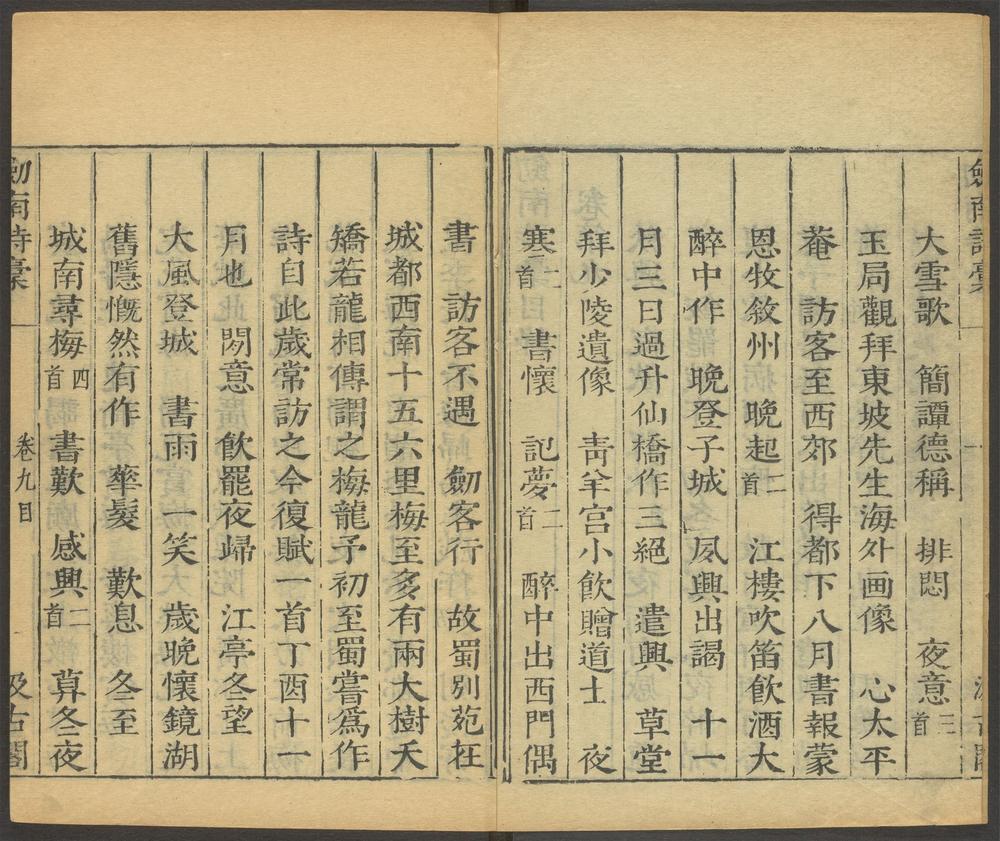 劍南詩稾
大雪歌　簡譚德稱　排悶　夜意三首
玉局觀拜東坡先生海外画像　心太平
菴　訪客至西郊　得都下八月書報蒙
恩牧敘州　晚起二首　江樓吹笛飲酒大
醉中作　晚登子城　夙興出謁　十一
月三日過升仙橋作三絕　遣興　草堂
拜少陵遺像　靑羊宮小飲贈道士　夜
寒二首　書懷　記夢二首　醉中出西門偶
書　訪客不遇　劒客行　故蜀別苑在
城都西南十五六里梅至多有兩大樹夭
矯若龍相傳謂之梅龍予初至蜀嘗爲作
詩自此歲常訪之今復賦一首丁酉十一
月也　閟意　飲罷夜歸　江亭冬望
大風登城　書雨　一笑　歲晚懷鏡湖
舊隱慨然有作　華髮　歎息　冬至
城南尋梅四首　書歎　感興二首　算冬夜
劍南詩稾　卷九目　汲古閣